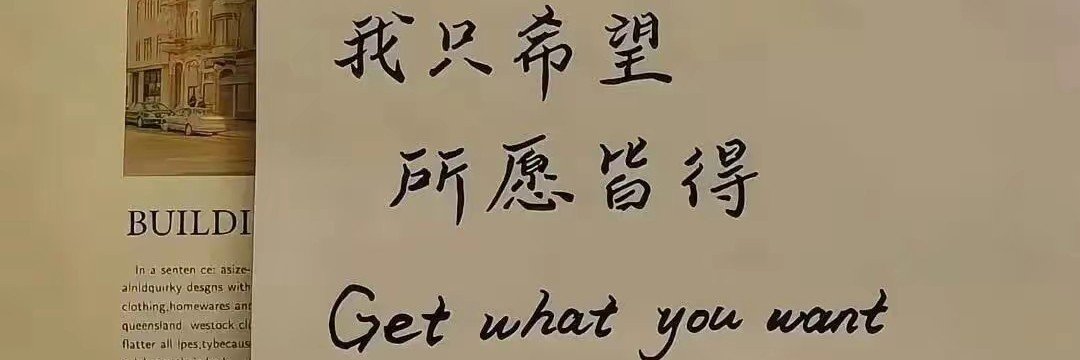 我只希望
所愿皆得
Get what you want
BUILDI
In a senten ce: asize-
alnldquirky desgns with
clothing,homewares and
queensland westock cl
flatter all lpes,tybecause